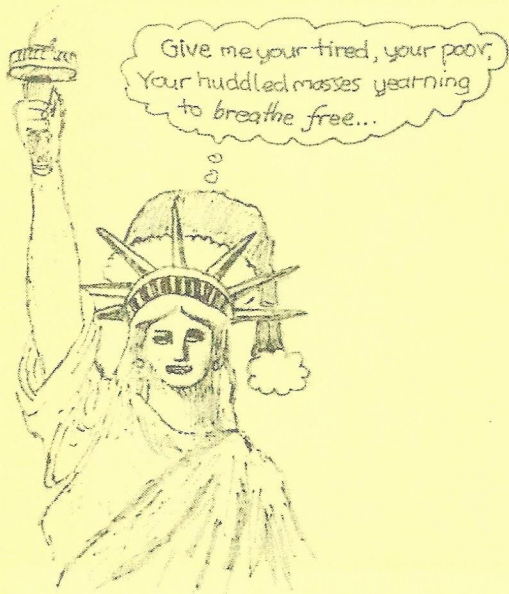 Give me your tired, your poor,
Your huddled masses yearning
to breathe free...